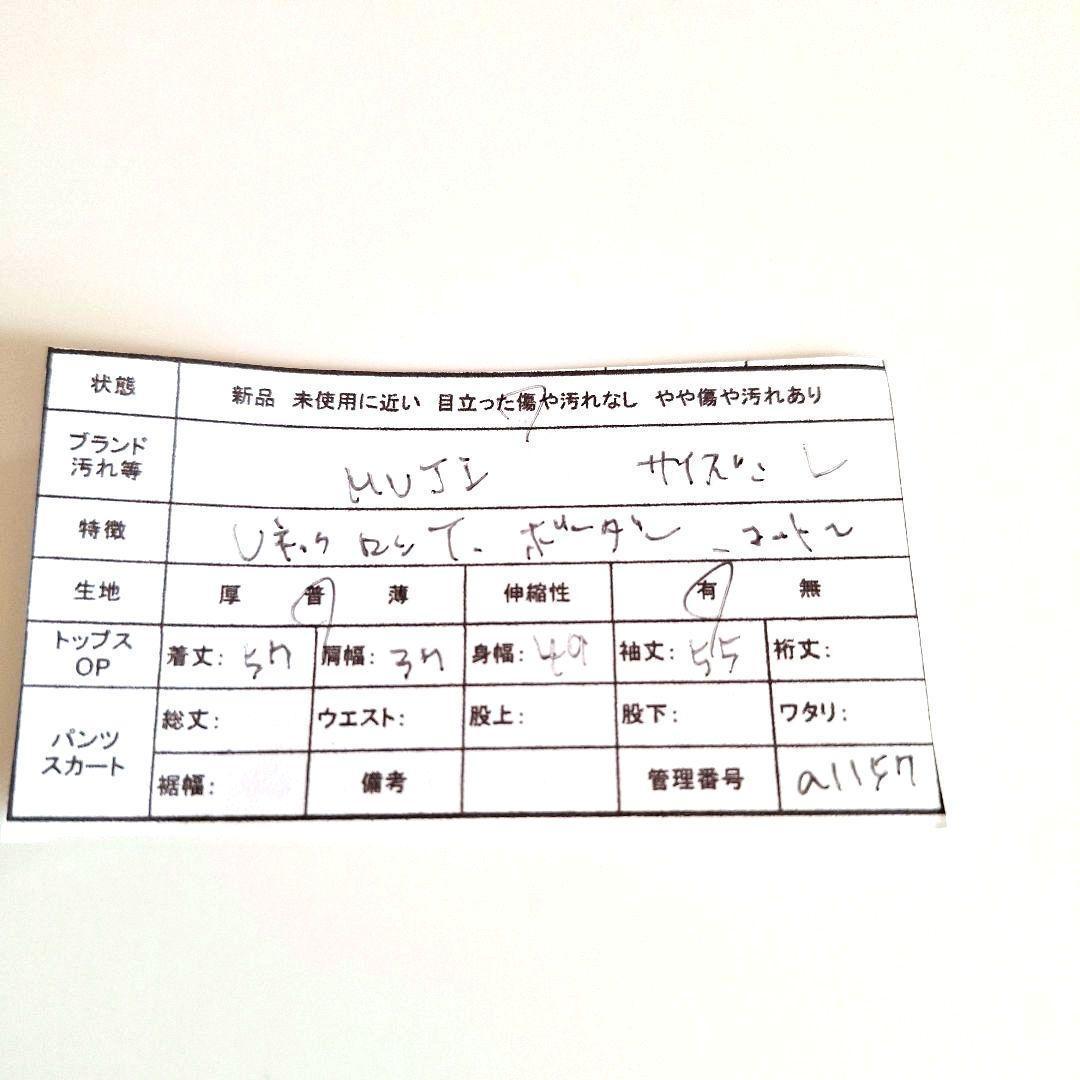 状態 新品 未使用に近い 目立った傷や汚れなし やや傷や汚れあり
ブランド
汚れ等 MUJI サイズ: L
特徴 Uネック ロンT. ボーダー コットン
生地 厚 普 薄 伸縮性 有 無
トップス
OP 着丈: 57 肩幅: 37 身幅: 49 袖丈: 55 裄丈:
パンツ
スカート 総丈: ウエスト: 股上: 股下: ワタリ:
裾幅: 備考 管理番号 a1157